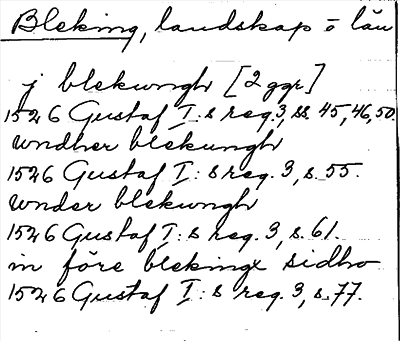 Bleking, landskap o län
j blekungh [2 ggr]
1526 Gustaf I:s reg. 3, ss. 45, 46, 50.
wndher blekungh
1526 Gustaf I:s reg. 3, s. 55.
wnder blekungh
1526 Gustaf I:s reg. 3, s. 61.
in före blekingx sidho
1526 Gustaf I:s reg. 3, s. 77.